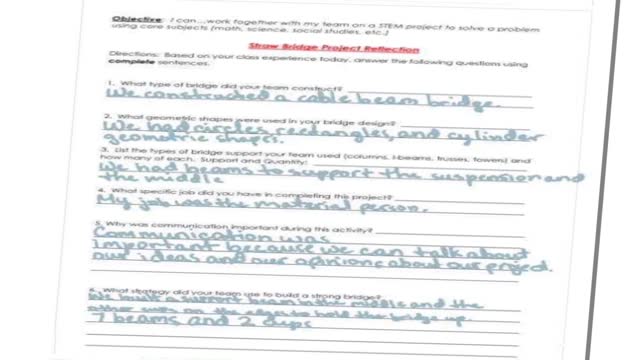 Objective: I can...work together with my team on a STEM project to solve a problem
using core subjects (math, science, social studies, etc.)
Straw Bridge Project Reflection
Directions: Based on your class experience today, answer the following questions using
complete sentences.
1. What type of bridge did your team construct?
We constructed a cable beam bridge.
2. What geometric shapes were used in your bridge design?
We had circles, rectangles, and cylinder
geometric shapes.
3. List the types of bridge support your team used (columns, I-beams, trusses, towers) and
how many of each. Support and Quantity:
We had beams to support the suspension and
the middle
4. What specific job did you have in completing this project?
My job was the material person.
5. Why was communication important during this activity?
Communication was
important because we can talk about
our ideas and our opinions about our project.
6. What strategy did your team use to build a strong bridge?
We built a support beam in the middle and the
other was on the edges to hold the bridge up.
7 beams and 2 cups